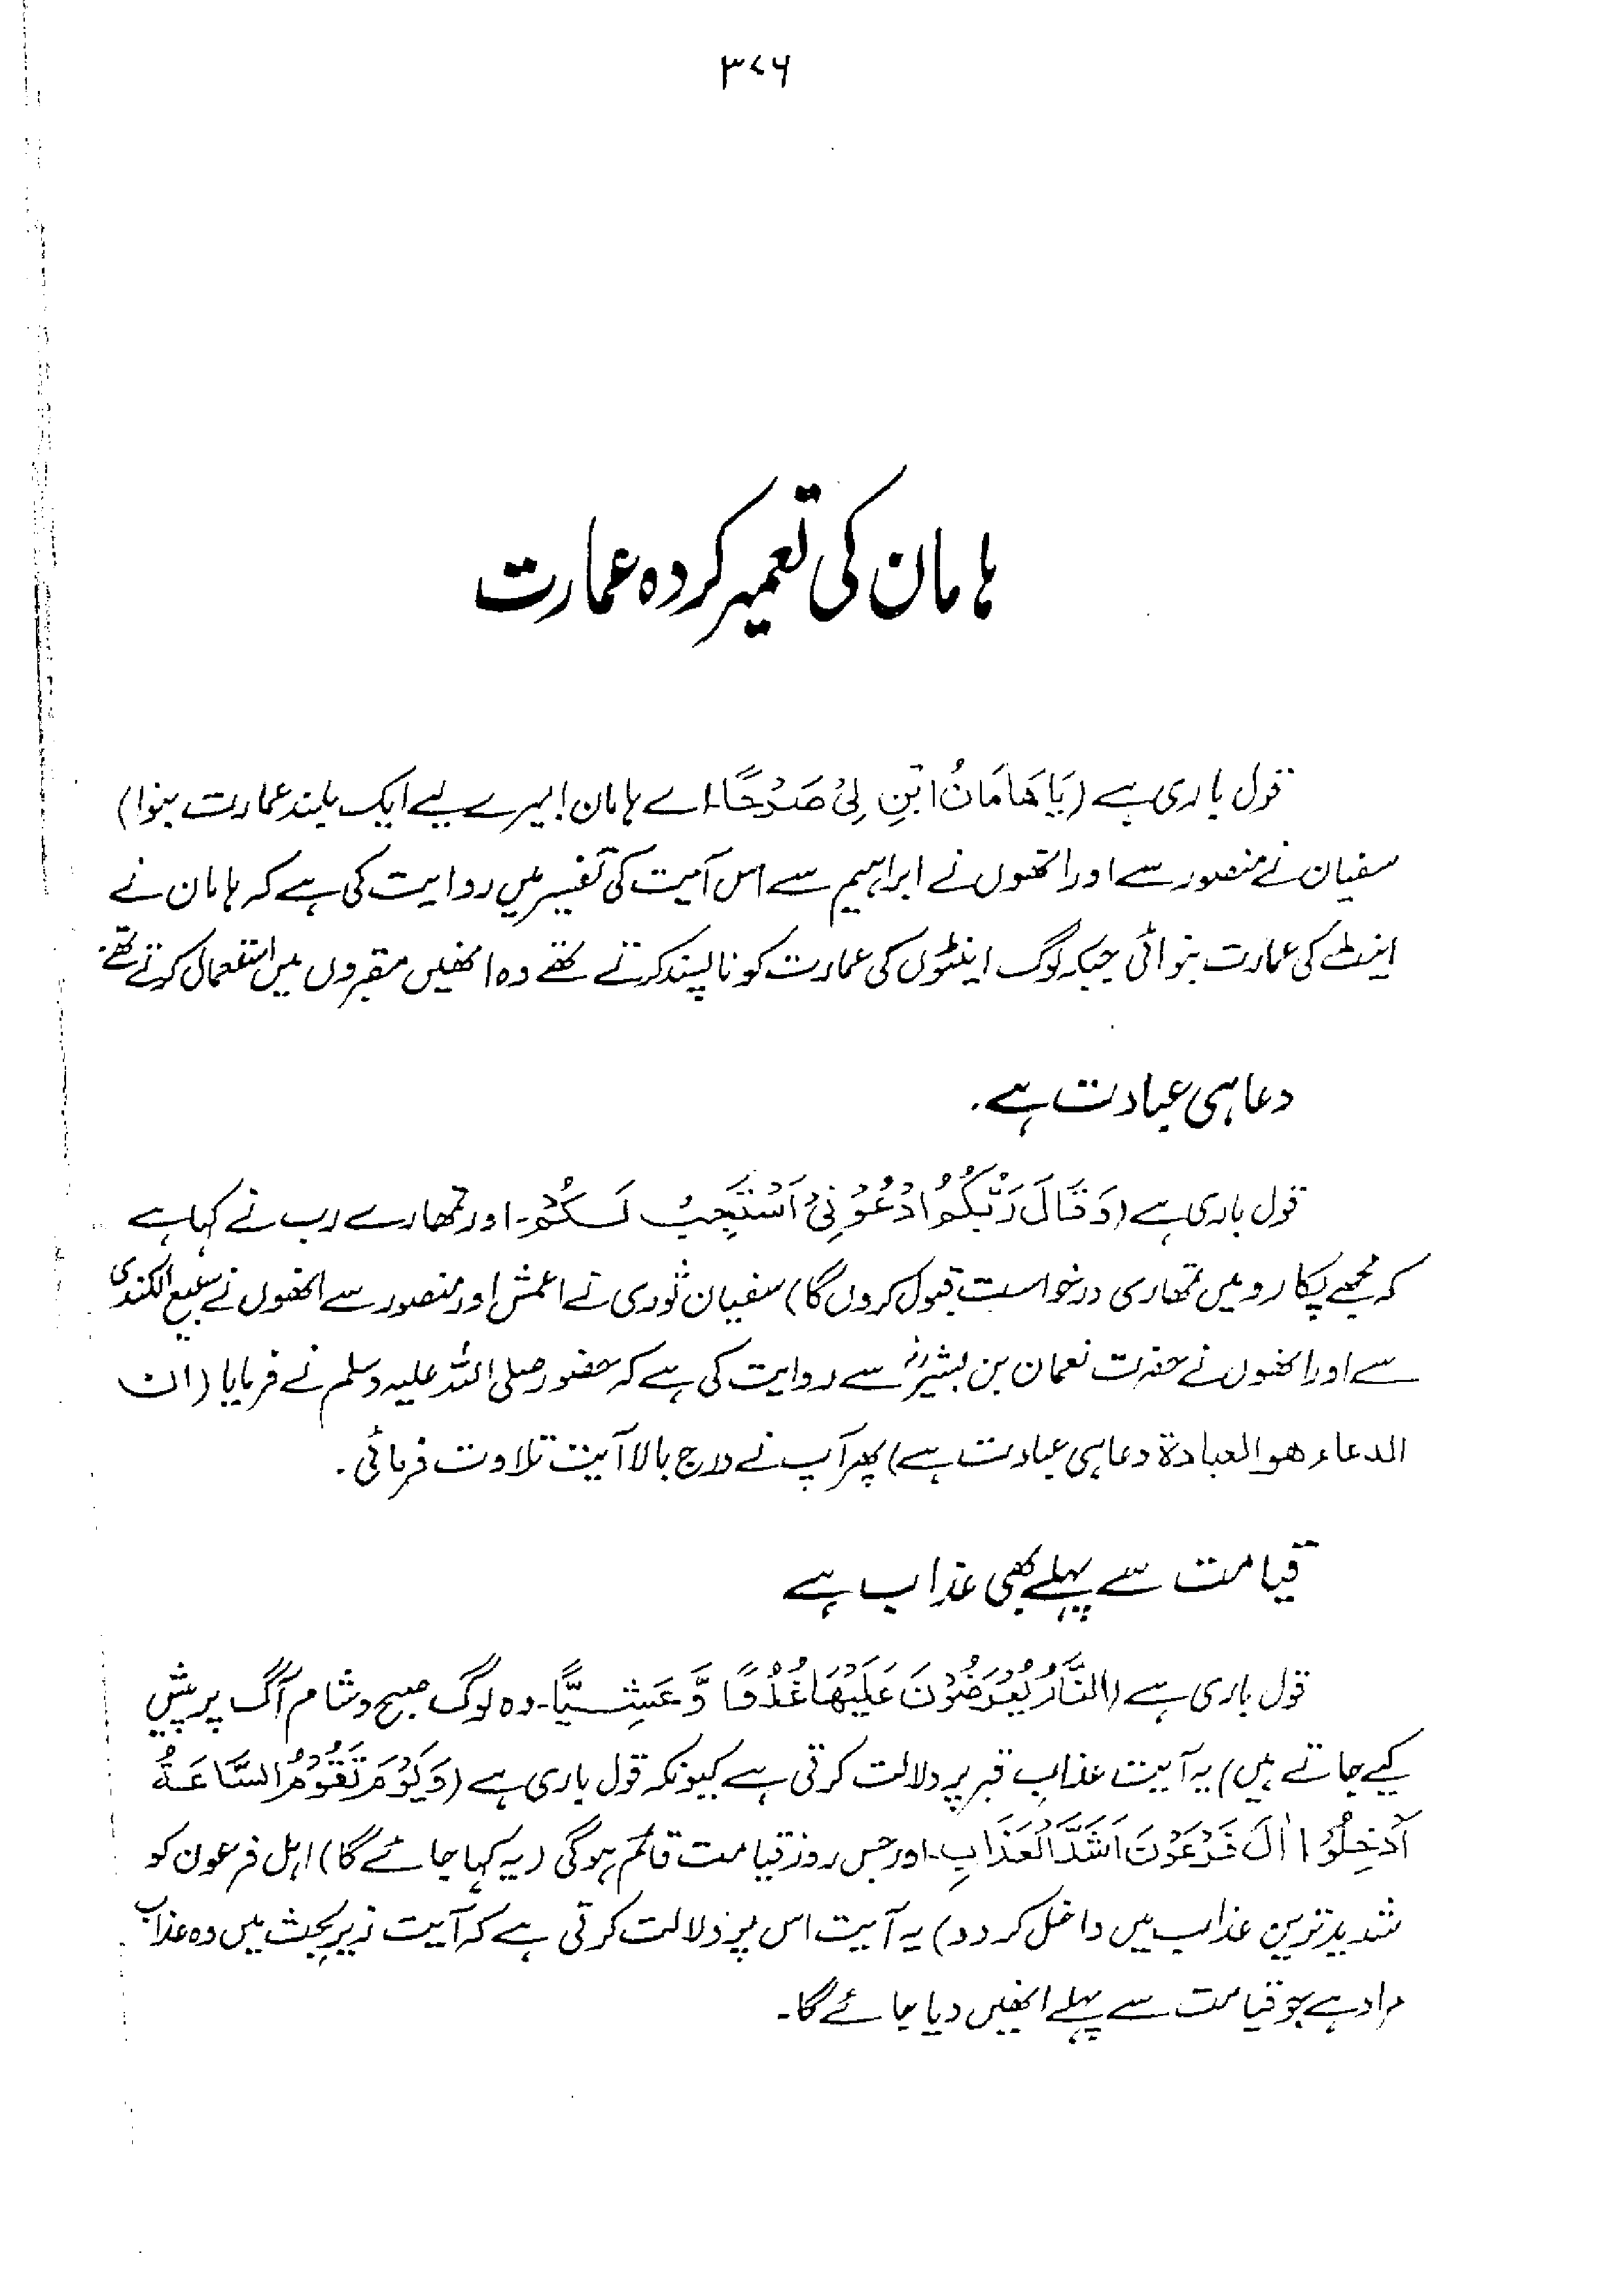 ۳۷۶
ہامان کی تعمیر کردہ عمارت
قول باری ہے (يَا هَامَانُ ابْنِ لِيْ صَرْحًا۔ اے ہامان! میرے لیے ایک بلند عمارت بنوا)
سفیان نے منصور سے اور انھوں نے ابراہیم سے اس آیت کی تفسیر میں روایت کی ہے کہ ہامان نے
اینٹ کی عمارت بنوائی جبکہ لوگ اینٹوں کی عمارت کو ناپسند کرتے تھے وہ انھیں مقبروں میں استعمال کرتے تھے۔
دعا ہی عبادت ہے۔
قول باری ہے (وَقَالَ رَبُّكُمُ ادْعُوْنِيْ اَسْتَجِبْ لَكُمْ۔ اور تمھارے رب نے کہا ہے
کہ مجھے پکارو میں تمھاری درخواست قبول کروں گا) سفیان ثوری نے اعمش اور منصور سے انھوں نے سبیع الکندی
سے اور انھوں نے حضرت نعمان بن بشیرؓ سے روایت کی ہے کہ حضور صلی اللہ علیہ وسلم نے فرمایا (ان
الدعاء هو العبادة دعا ہی عبادت ہے) پھر آپ نے درج بالا آیت تلاوت فرمائی۔
قیامت سے پہلے بھی عذاب ہے
قول باری ہے (اَلنَّارُ يُعْرَضُوْنَ عَلَيْهَا غُدُوًّا وَّ عَشِيًّا۔ وہ لوگ صبح و شام آگ پر پیش
کیے جاتے ہیں) یہ آیت عذاب قبر پر دلالت کرتی ہے کیونکہ قول باری ہے (وَيَوْمَ تَقُوْمُ السَّاعَةُ
اَدْخِلُوْا اٰلَ فَرْعَوْنَ اَشَدَّ الْعَذَابِ۔ اور جس روز قیامت قائم ہوگی (یہ کہا جائے گا) اہل فرعون کو
شدید ترین عذاب میں داخل کر دو) یہ آیت اس پر دلالت کرتی ہے کہ آیت زیر بحث میں وہ عذاب
مراد ہے جو قیامت سے پہلے انھیں دیا جائے گا۔